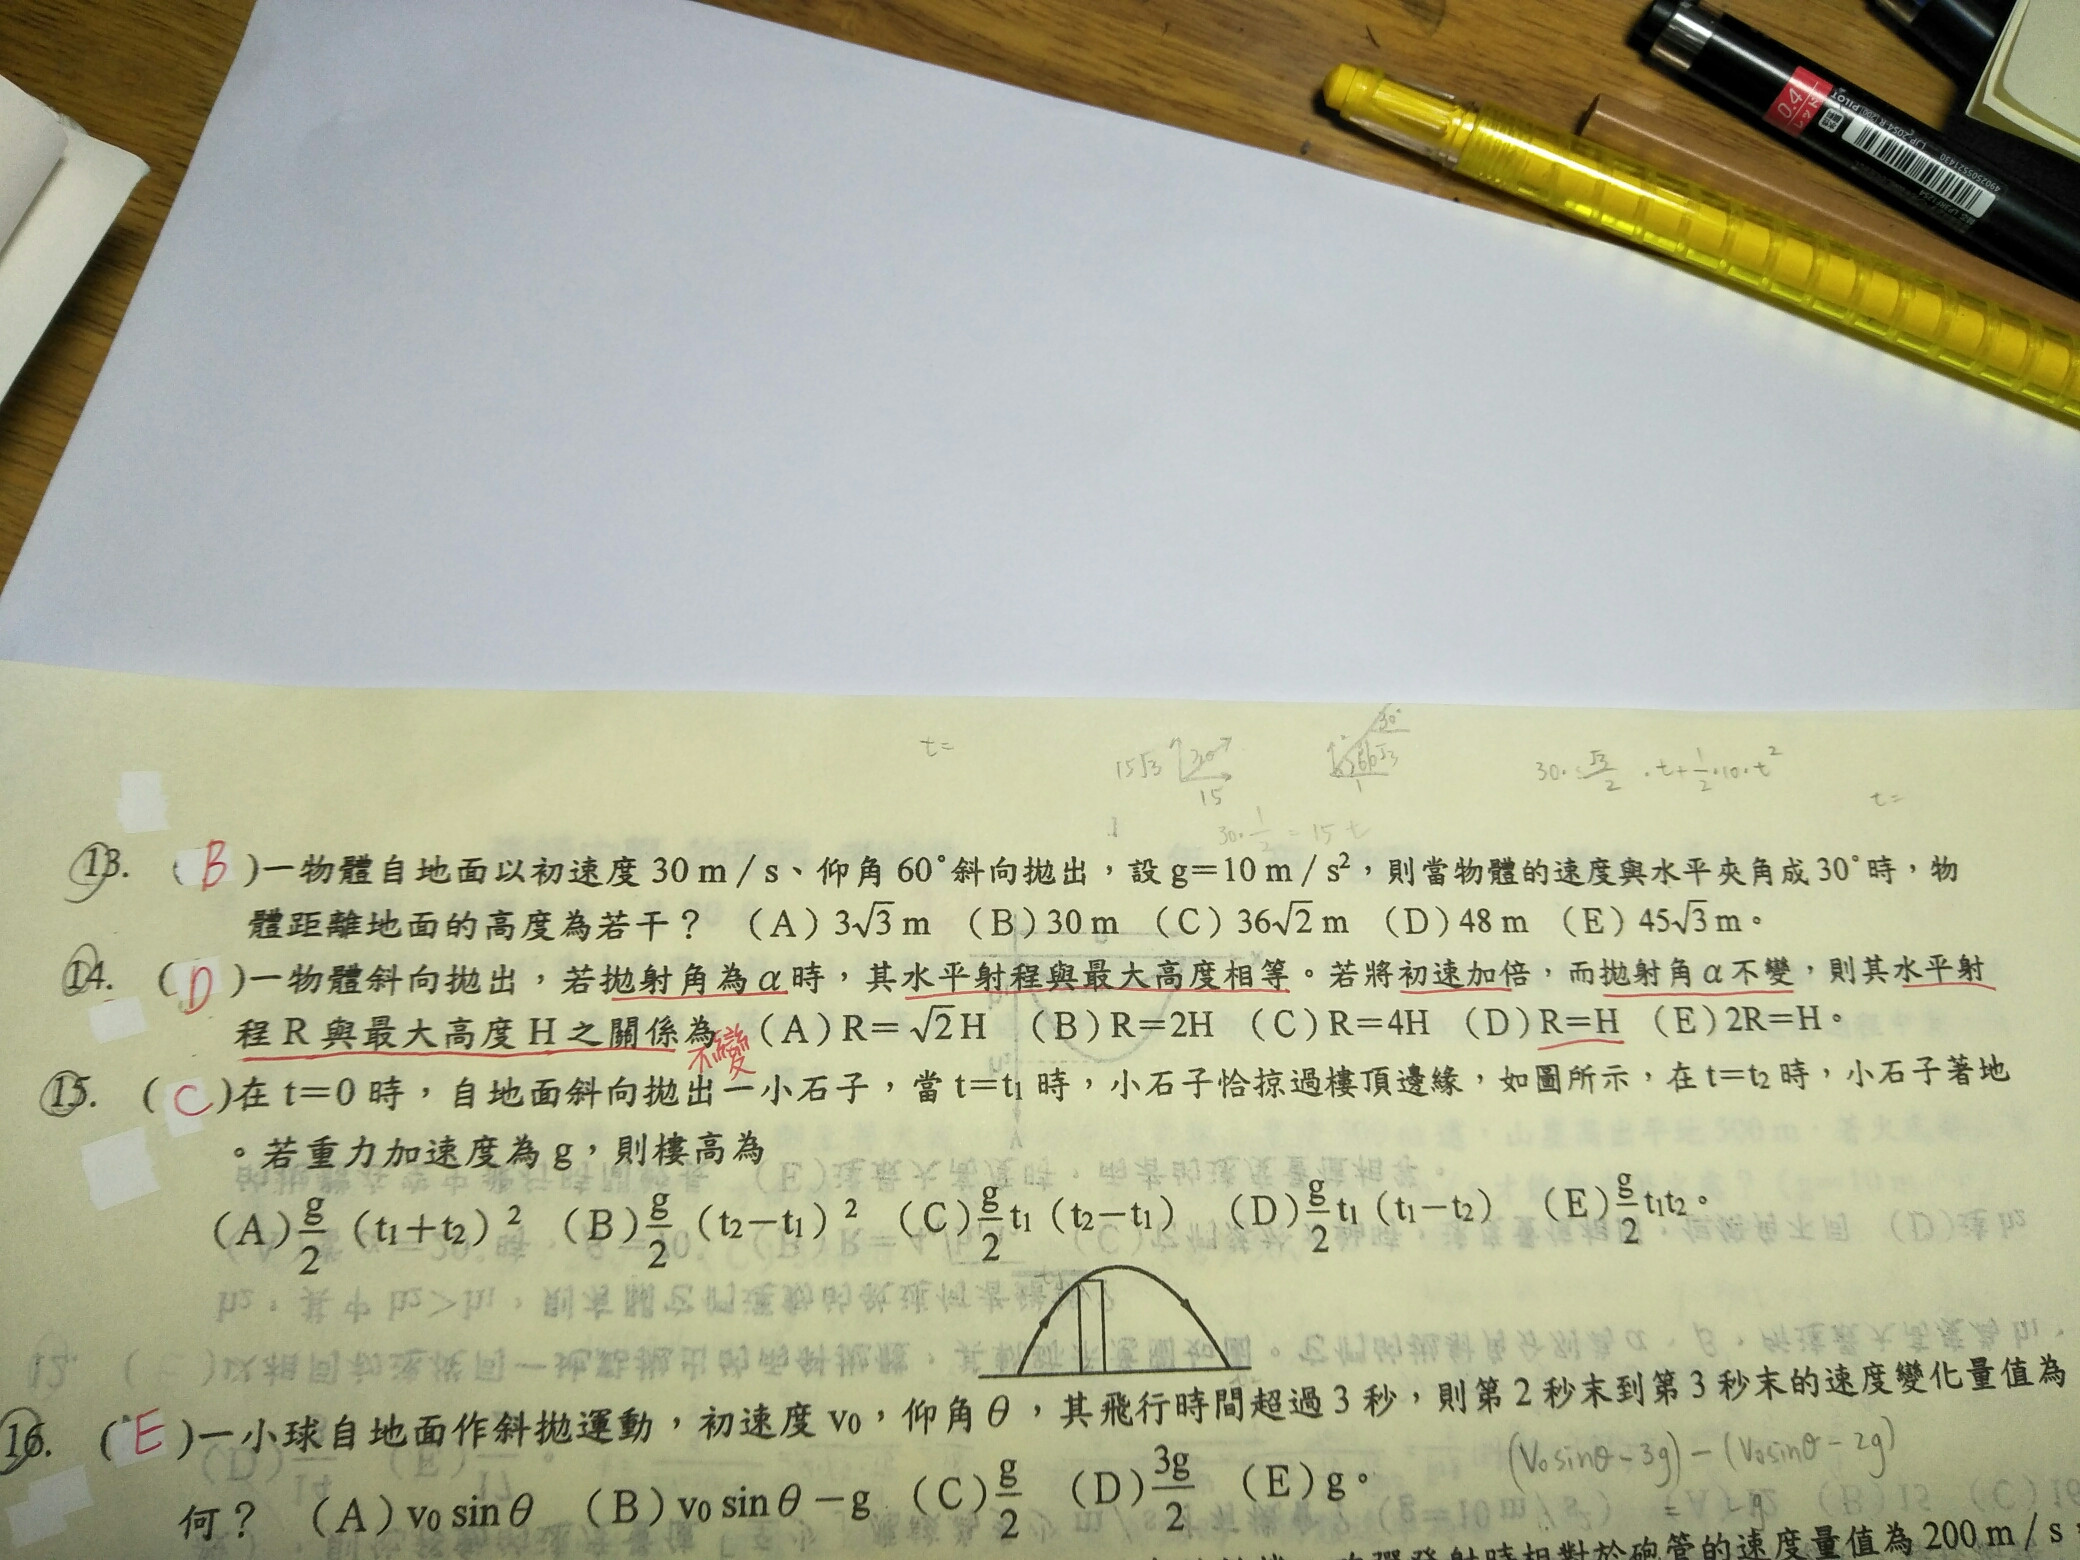 0.4
PILOT
t=
15√3 30° 15
30° 60° √3 1
30·√3/2·t+1/2·10·t²
t=
30·1/2=15 t
13. (B)一物體自地面以初速度 30 m/s、仰角 60°斜向拋出，設 g=10 m/s²，則當物體的速度與水平夾角成 30°時，物
體距離地面的高度為若干？ (A) 3√3 m (B) 30 m (C) 36√2 m (D) 48 m (E) 45√3 m。
14. (D)一物體斜向拋出，若拋射角為 α 時，其水平射程與最大高度相等。若將初速加倍，而拋射角 α 不變，則其水平射
程 R 與最大高度 H 之關係為 (A) R=√2H (B) R=2H (C) R=4H (D) R=H (E) 2R=H。
不變
15. (C)在 t=0 時，自地面斜向拋出一小石子，當 t=t₁ 時，小石子恰掠過樓頂邊緣，如圖所示，在 t=t₂ 時，小石子著地
。若重力加速度為 g，則樓高為
(A) g/2 (t₁+t₂)² (B) g/2 (t₂−t₁)² (C) g/2 t₁ (t₂−t₁) (D) g/2 t₁ (t₁−t₂) (E) g/2 t₁t₂。
16. (E)一小球自地面作斜拋運動，初速度 v₀，仰角 θ，其飛行時間超過 3 秒，則第 2 秒末到第 3 秒末的速度變化量值為
(V₀sinθ−3g)−(V₀sinθ−2g)
= −g
何？ (A) v₀ sinθ (B) v₀ sinθ−g (C) g/2 (D) 3g/2 (E) g。
發射時相對於砲管的速度量值為 200 m/s